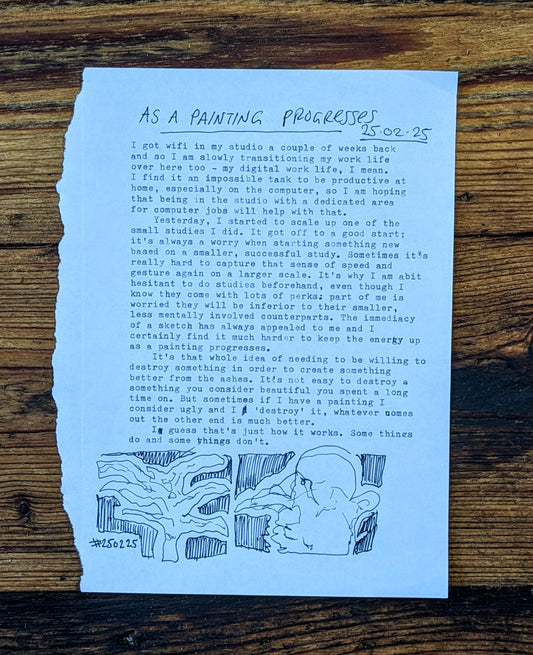 AS A PAINTING PROGRESSES
25.02.25
I got wifi in my studio a couple of weeks back
and so I am slowly transitioning my work life
over here too - my digital work life, I mean.
I find it an impossible task to be productive at
home, especially on the computer, so I am hoping
that being in the studio with a dedicated area
for computer jobs will help with that.
Yesterday, I started to scale up one of the
small studies I did. It got off to a good start;
it's always a worry when starting something new
based on a smaller, successful study. Sometimes it's
really hard to capture that sense of speed and
gesture again on a larger scale. It's why I am abit
hesitant to do studies beforehand, even though I
know they come with lots of perks: part of me is
worried they will be inferior to their smaller,
less mentally involved counterparts. The immediacy
of a sketch has always appealed to me and I
certainly find it much harder to keep the energy up
as a painting progresses.
It's that whole idea of needing to be willing to
destroy something in order to create something
better from the ashes. It's not easy to destroy a
something you consider beautiful you spent a long
time on. But sometimes if I have a painting I
consider ugly and I 'destroy' it, whatever comes
out the other end is much better.
I guess that's just how it works. Some things
do and some things don't.
#250225